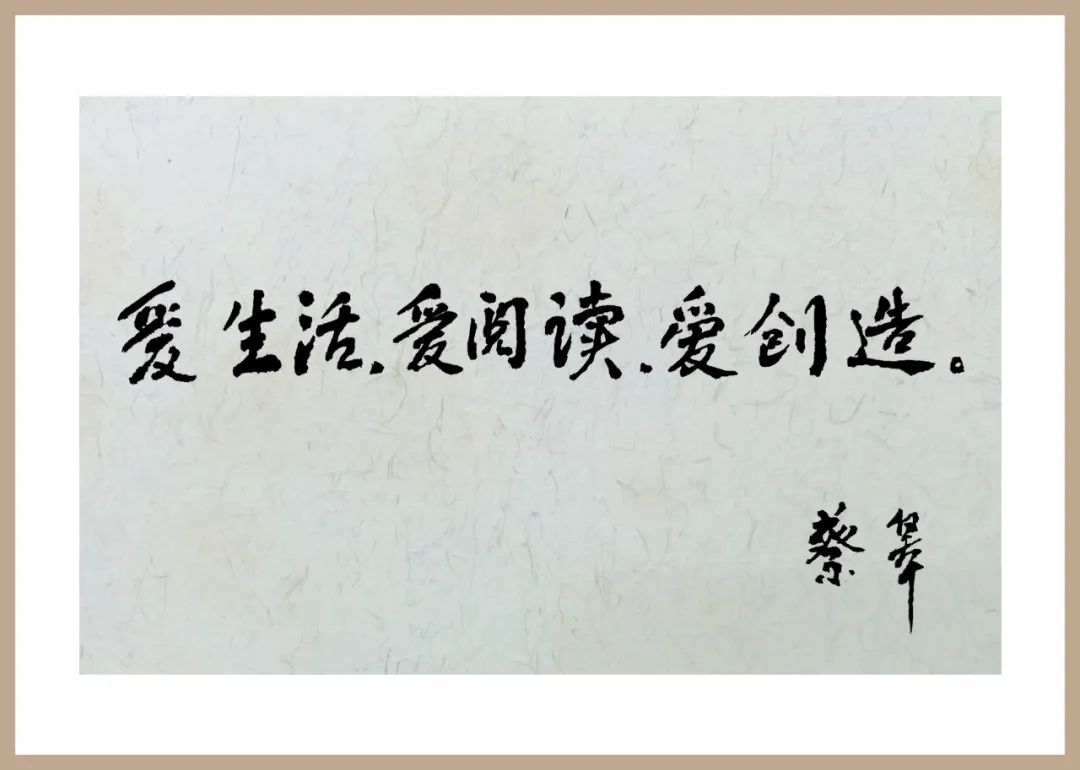 爱生活、爱阅读、爱创造。
蔡皋